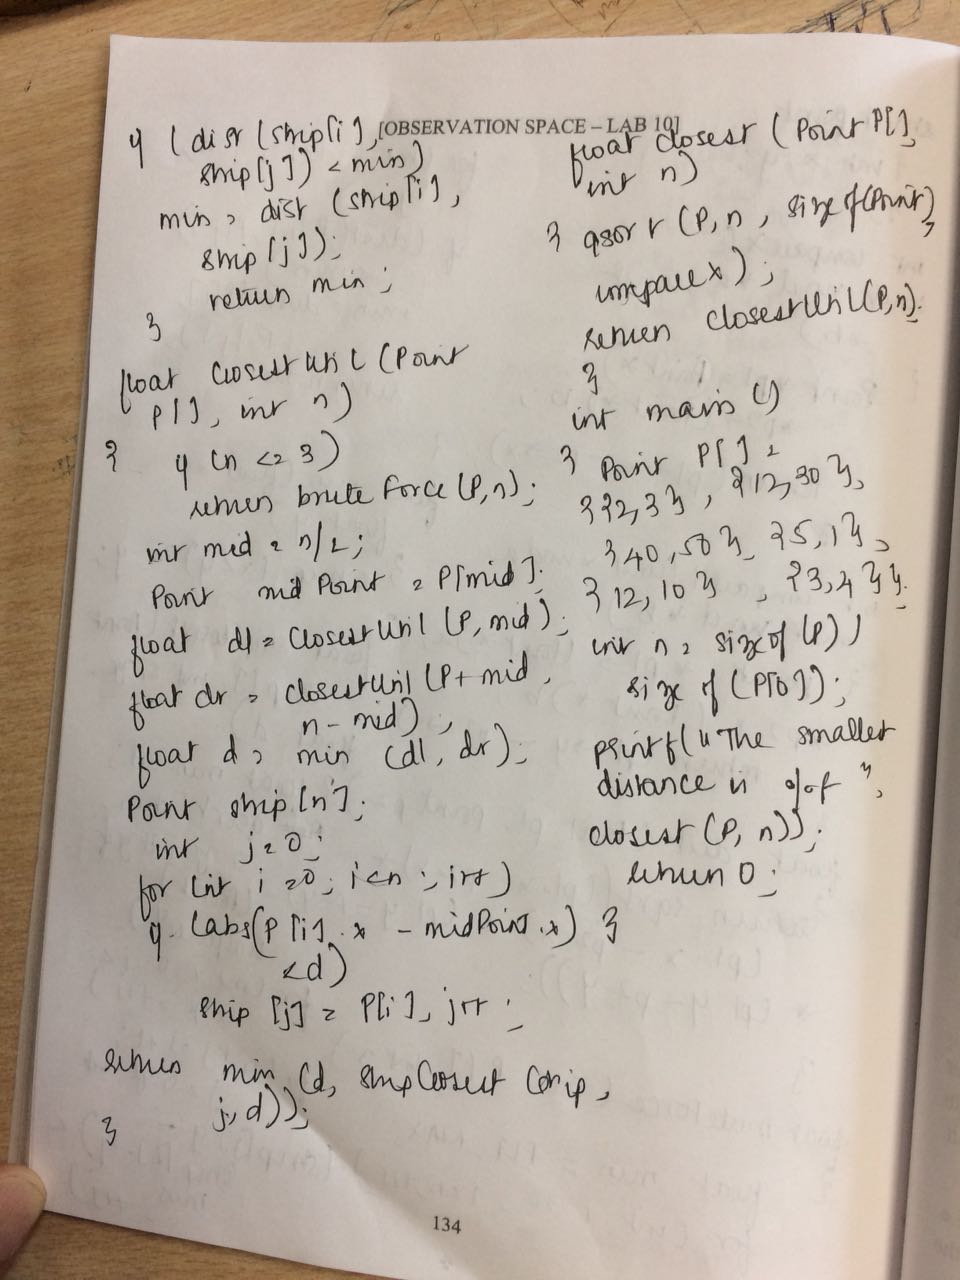 [OBSERVATION SPACE – LAB 10]
if (dist (strip[i],
strip[j]) < min)
min = dist (strip[i],
strip[j]);
return min;
}
float closestUtil (Point
P[], int n)
{ if (n <= 3)
return bruteForce(P,n);
int mid = n/2;
Point midPoint = P[mid];
float dl = closestUtil (P, mid);
float dr = closestUtil (P+mid,
n-mid);
float d = min (dl, dr);
Point strip[n];
int j=0;
for (int i =0; i<n; i++)
if (abs(P[i].x - midPoint.x)
<d)
strip [j] = P[i], j++;
return min (d, stripClosest (strip,
j, d));
}
float closest (Point P[],
int n)
{ qsort (P, n, sizeof(Point),
compareX);
return closestUtil(P,n);
}
int main ()
{ Point P[] =
{{2,3}, {12,30},
{40,50}, {5,1},
{12,10}, {3,4}};
int n = sizeof (P) /
sizeof (P[0]);
printf("The smallest
distance is %f ",
closest (P, n));
return 0;
}
134